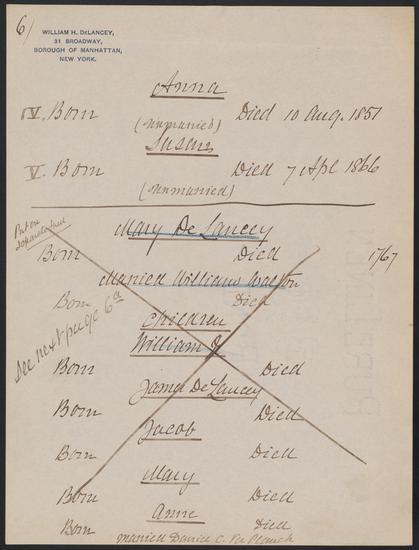 6/
WILLIAM H. DELANCEY,
31 BROADWAY,
BOROUGH OF MANHATTAN,
NEW YORK.
Anna
IV. Born Died 10 Aug. 1851
(unmarried)
Susan
V. Born Died 7 Apl 1866
(unmarried)
Put on
separate sheet
Mary De Lancey
Born Died 1767
Married William Walton
Born Died
See next page 6a
Children
William
Born Died
James De Lancey
Born Died
Jacob
Born Died
Mary
Born Died
Anne
Born Died
married Daniel C. Ver Planck